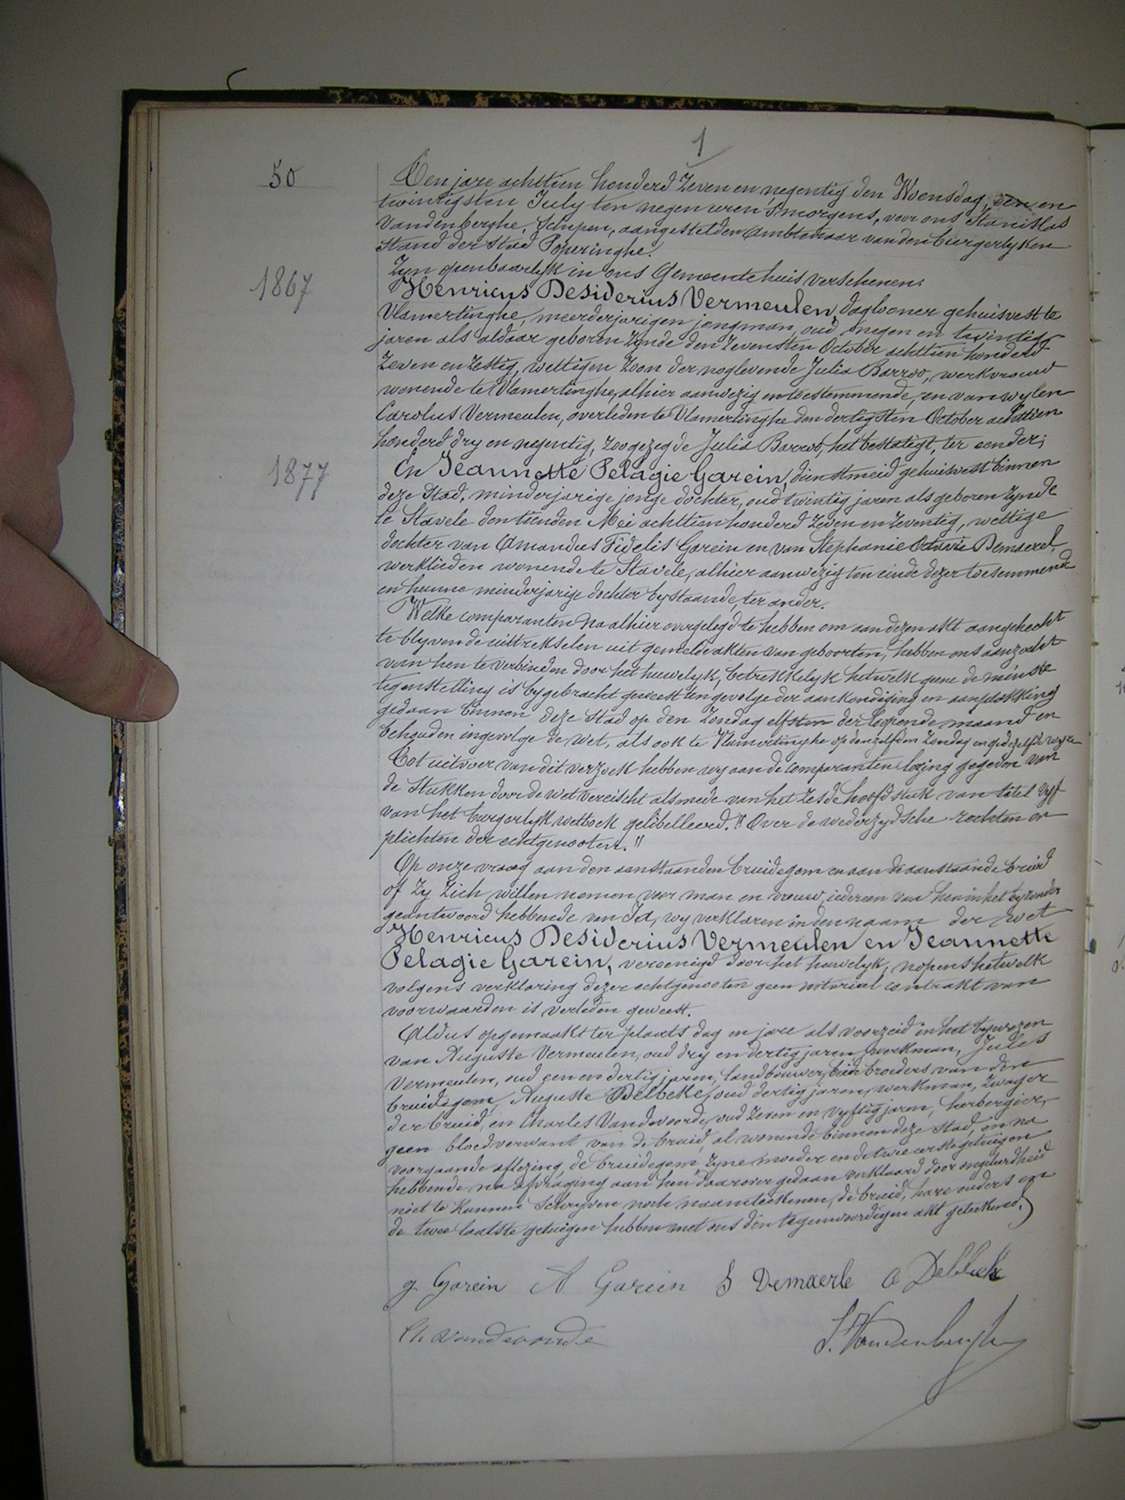 1
50
Den jare achttien honderd zeven en negentig den Woensdag, een en
twintigsten July ten negen uren 's morgens, voor ons Stanislas
Vandenberghe, Schepen, aangestelden Ambtenaar van den burgerlyken
stand der stad Poperinghe.
Zyn openbaarlyk in ons Gemeentehuis verschenen:
1867
Henricus Desiderius Vermeulen, daglooner gehuisvest te
Vlamertinghe, meerderjarigen jongman, oud negen en twintig
jaren als aldaar geboren zynde den zevensten October achttien honderd
zeven en zestig, wettigen zoon der noglevende Julia Barroo, werkvrouw
wonende te Vlamertinghe, alhier aanwezig en toestemmende, en van wylen
Carolus Vermeulen, overleden te Vlamertinghe den dertigsten October achttien
honderd dry en negentig, zoogezegde Julia Barroo, het bestatigt, ter eender;
1877
En Jeannette Pelagie Garein, dienstmeid gehuisvest binnen
deze Stad, minderjarige jonge dochter, oud twintig jaren als geboren zynde
te Stavele den tienden Mei achttien honderd zeven en zeventig, wettige
dochter van Amandus Fidelis Garein en van Stephanie Octavie Demaerel,
werklieden wonende te Stavele, alhier aanwezig ten einde dezer toestemmende
en hunne minderjarige dochter bystaande, ter ander.
Welke comparanten na alhier overgelegd te hebben om aan dezen akt aangehecht
te blyven de uittrekselen uit gemelde akten van geboorten, hebben ons aanzocht
van hen te verbinden door het huwelyk, betrekkelyk hetwelk geene de minste
tegenstelling is bygebracht geweest ten gevolge der aankondiging en aanplakking
gedaan binnen deze Stad op den Zondag elfsten der loopende maand en
behouden ingevolge de wet, als ook te Vlamertinghe op denzelfden Zondag en op dezelfde wyze
Tot uitvoer van dit verzoek hebben wy aan de comparanten lezing gegeven van
de Stukken door de wet vereischt alsmede van het zesde hoofdstuk van titel vyf
van het burgerlyk wetboek gelibelleerd. "Over de wederzydsche rechten en
plichten der echtgenooten."
Op onze vraag aan den aanstaanden bruidegom en aan de aanstaande bruid
of zy zich willen nemen voor man en vrouw, iedereen van hen in het byzonder
geantwoord hebbende van Ja, wy verklaren in den naam der wet
Henricus Desiderius Vermeulen en Jeannette
Pelagie Garein, vereenigd door het huwelyk, nopens hetwelk
volgens verklaring dezer echtgenooten geen notarieel contrakt van
voorwaarden is verleden geweest.
Aldus opgemaakt ter plaats dag en jare als voorzeid in het bywezen
van Auguste Vermeulen, oud dry en dertig jaren, werkman, Jules
Vermeulen, oud een en dertig jaren, landbouwer, beide broeders van den
bruidegom, Auguste Delbeke, oud dertig jaren, werkman, zwager
der bruid, en Charles Vandewoorde, oud zeven en vyftig jaren, herbergier,
geen bloedverwant van de bruid, al wonende binnen deze stad, en na
voorgaande aflezing, de bruidegom, zyne moeder en de twee eerste getuigen
hebbende na afvraging aan hen daarover gedaan verklaard door ongeleerdheid
niet te kunnen schryven noch naamteekenen, de bruid, hare ouders en
de twee laatste getuigen hebben met ons den tegenwoordigen akt geteekend.
g. Garein A Garein S Demaerle A Delbeke
Ch Vandewoorde
S. Vandenberghe